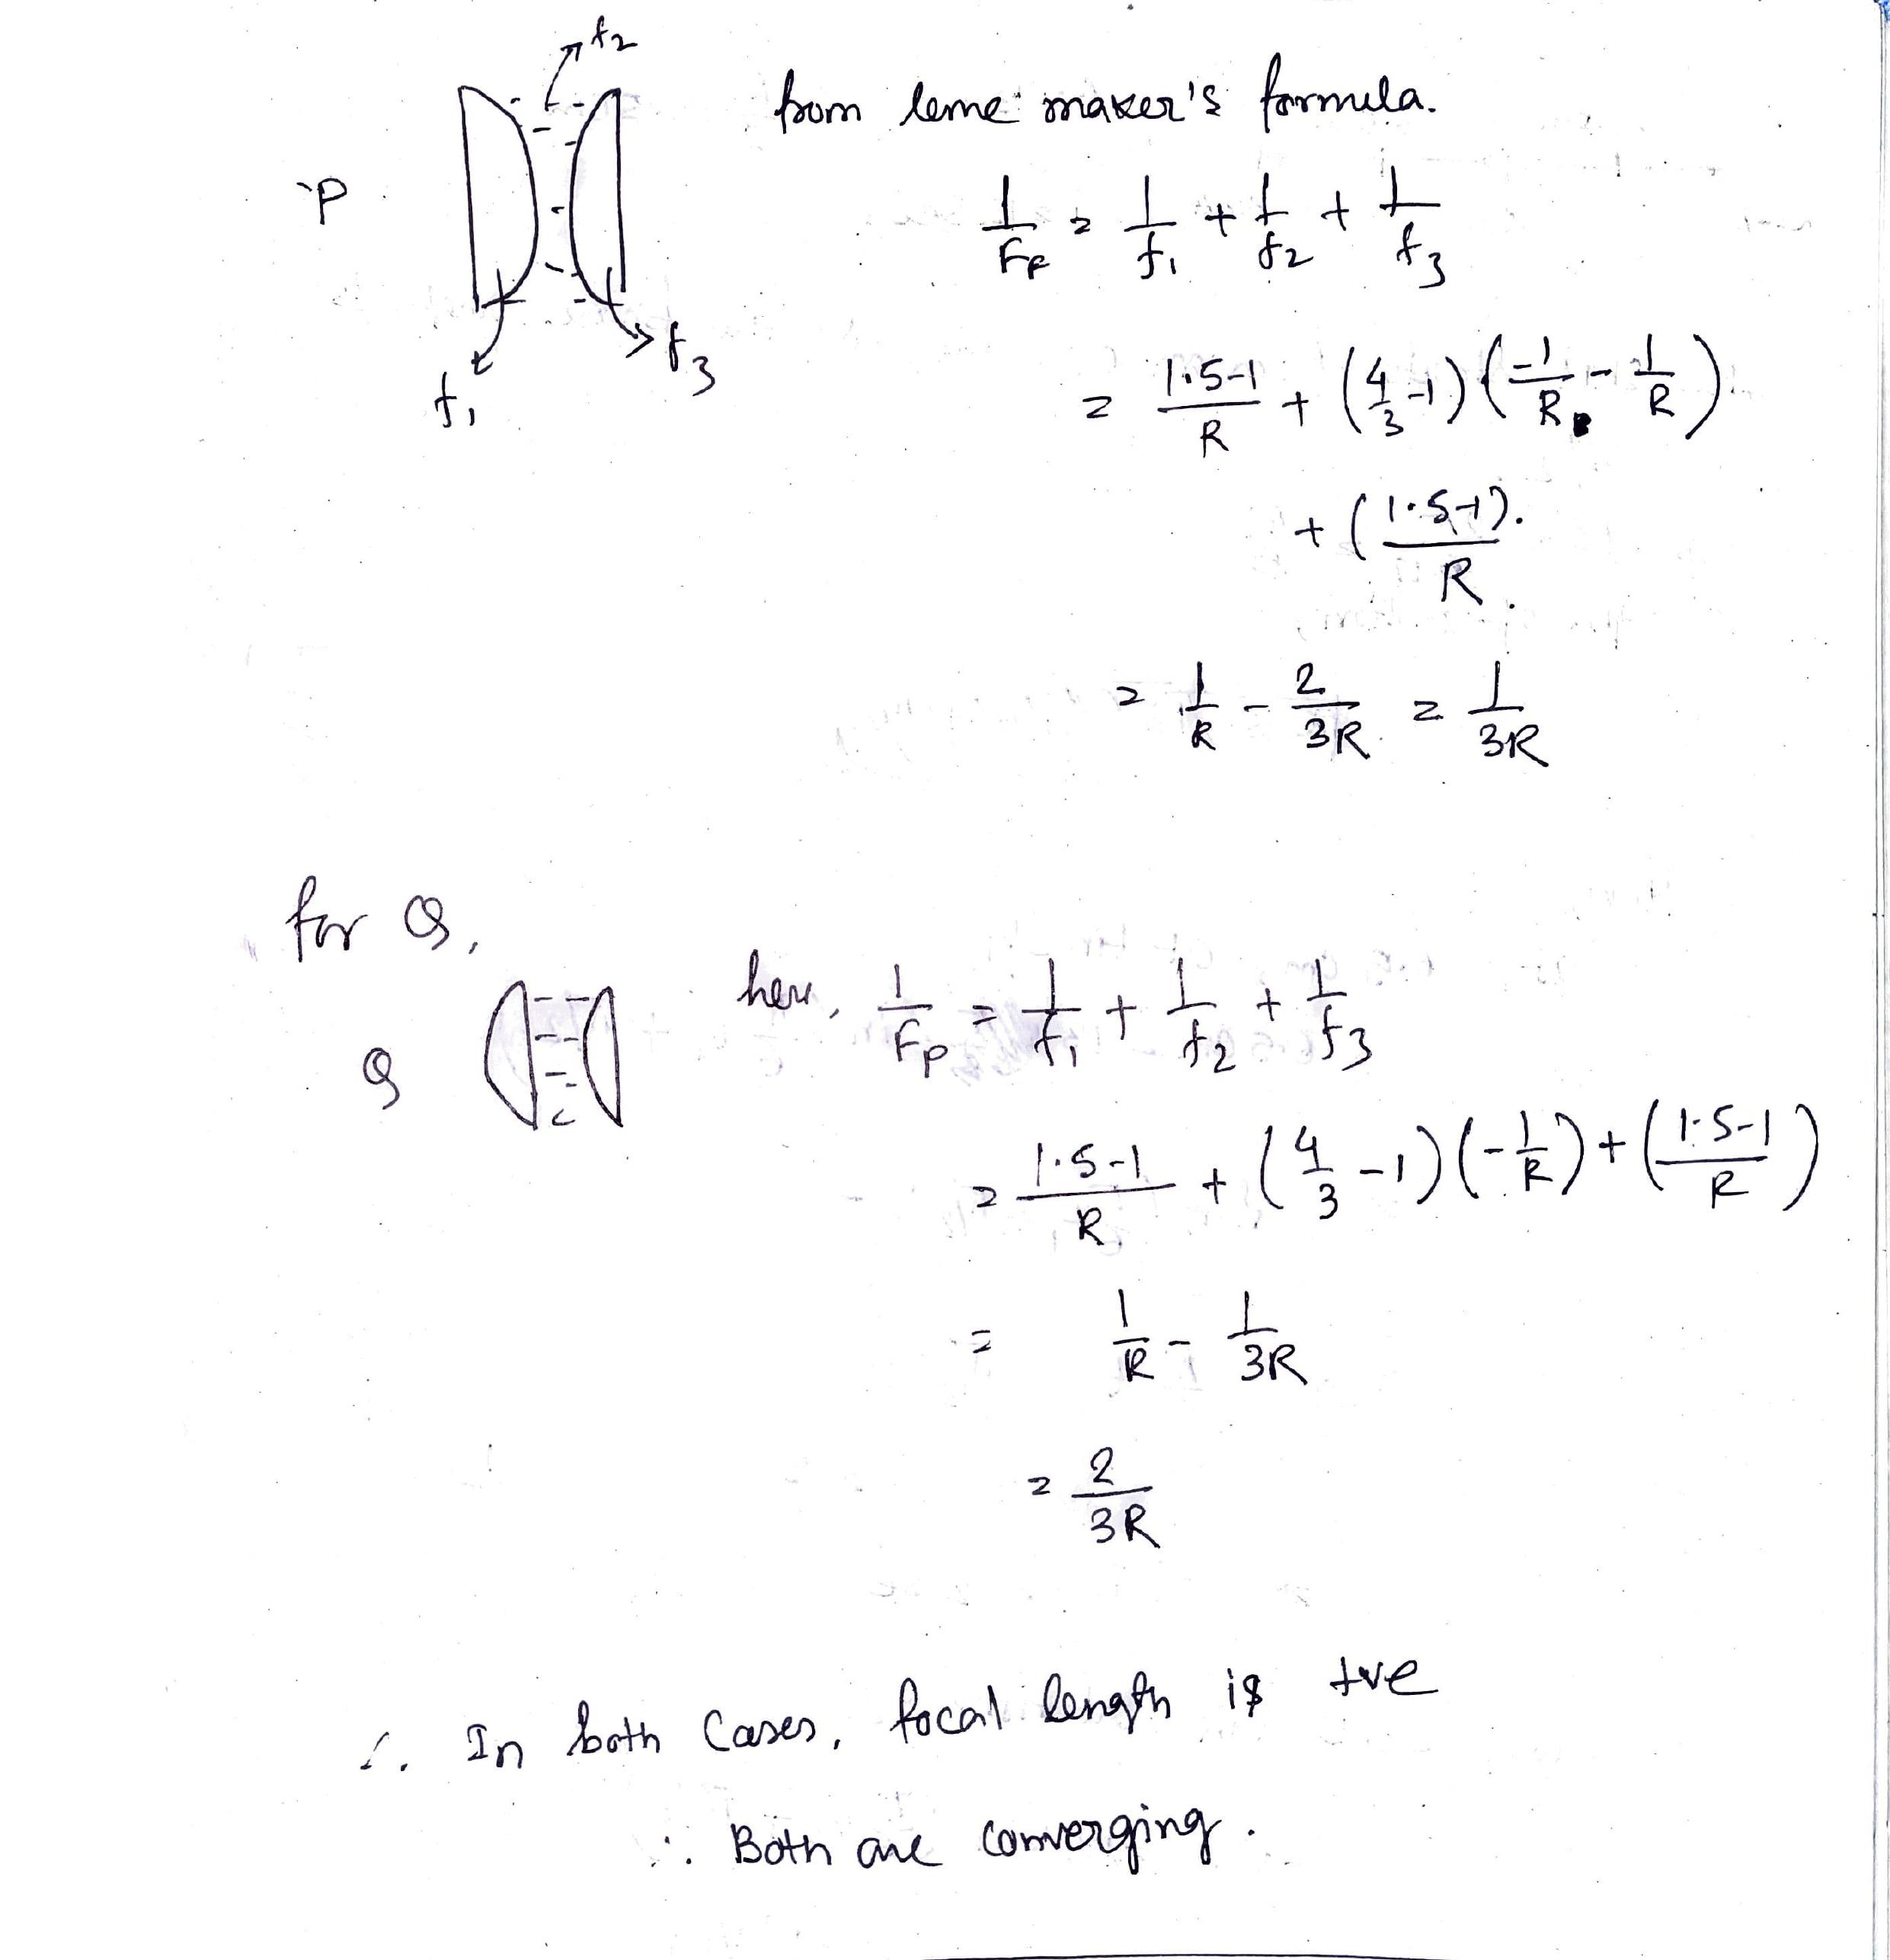 f2
from lens maker's formula.
P
1/FP = 1/f1 + 1/f2 + 1/f3
f3
f1
= 1.5-1/R + (4/3-1)(-1/R - 1/R)
+ (1.5-1)/R
= 1/R - 2/3R = 1/3R
for Q,
here, 1/FP = 1/f1 + 1/f2 + 1/f3
Q
= 1.5-1/R + (4/3-1)(-1/R) + (1.5-1/R)
= 1/R - 1/3R
= 2/3R
∴ In both cases, focal length is +ve
∴ Both are converging.